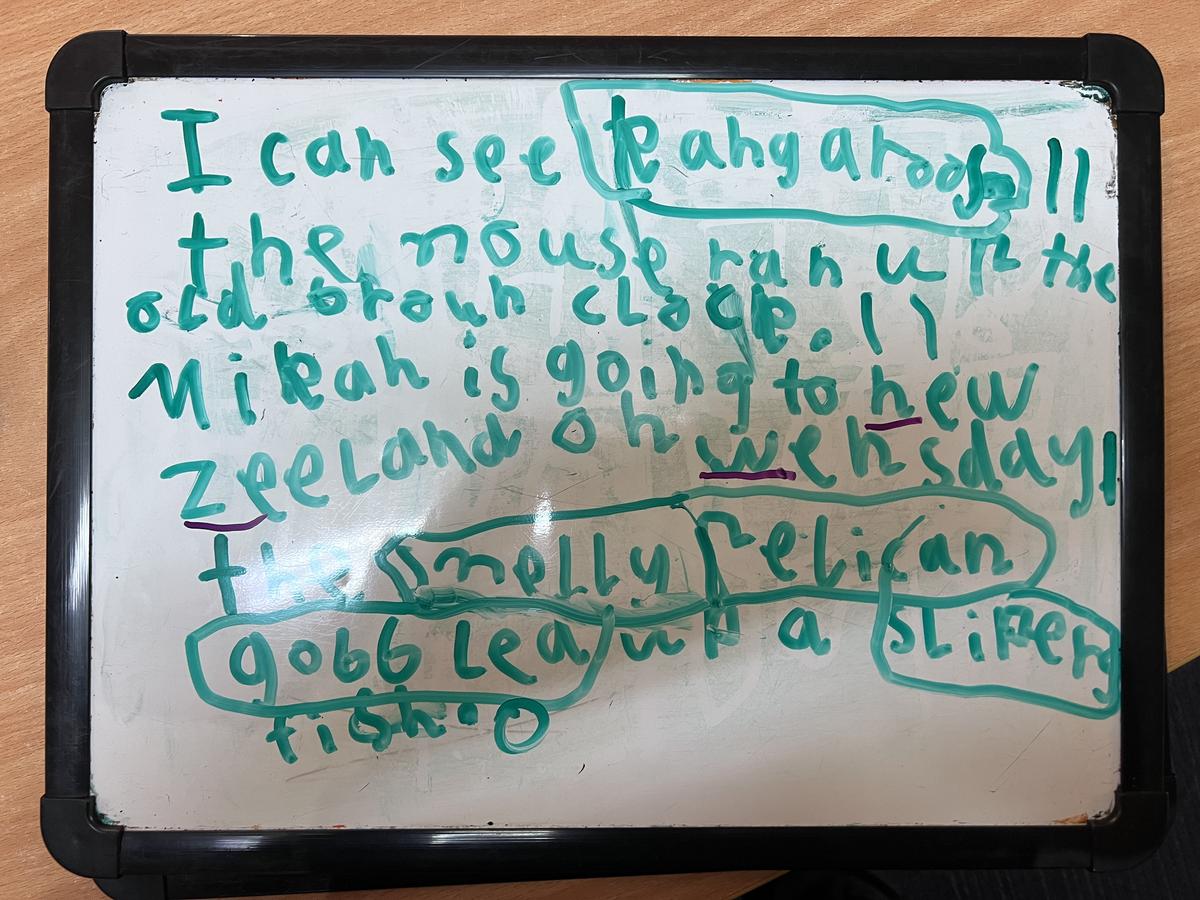 I can see kangaroos 11
the mouse ran up the
old brown clock. 11
Mikah is going to new
zeeland on wensday 1
the smelly pelican
gobbled up a slipery
fish. 0